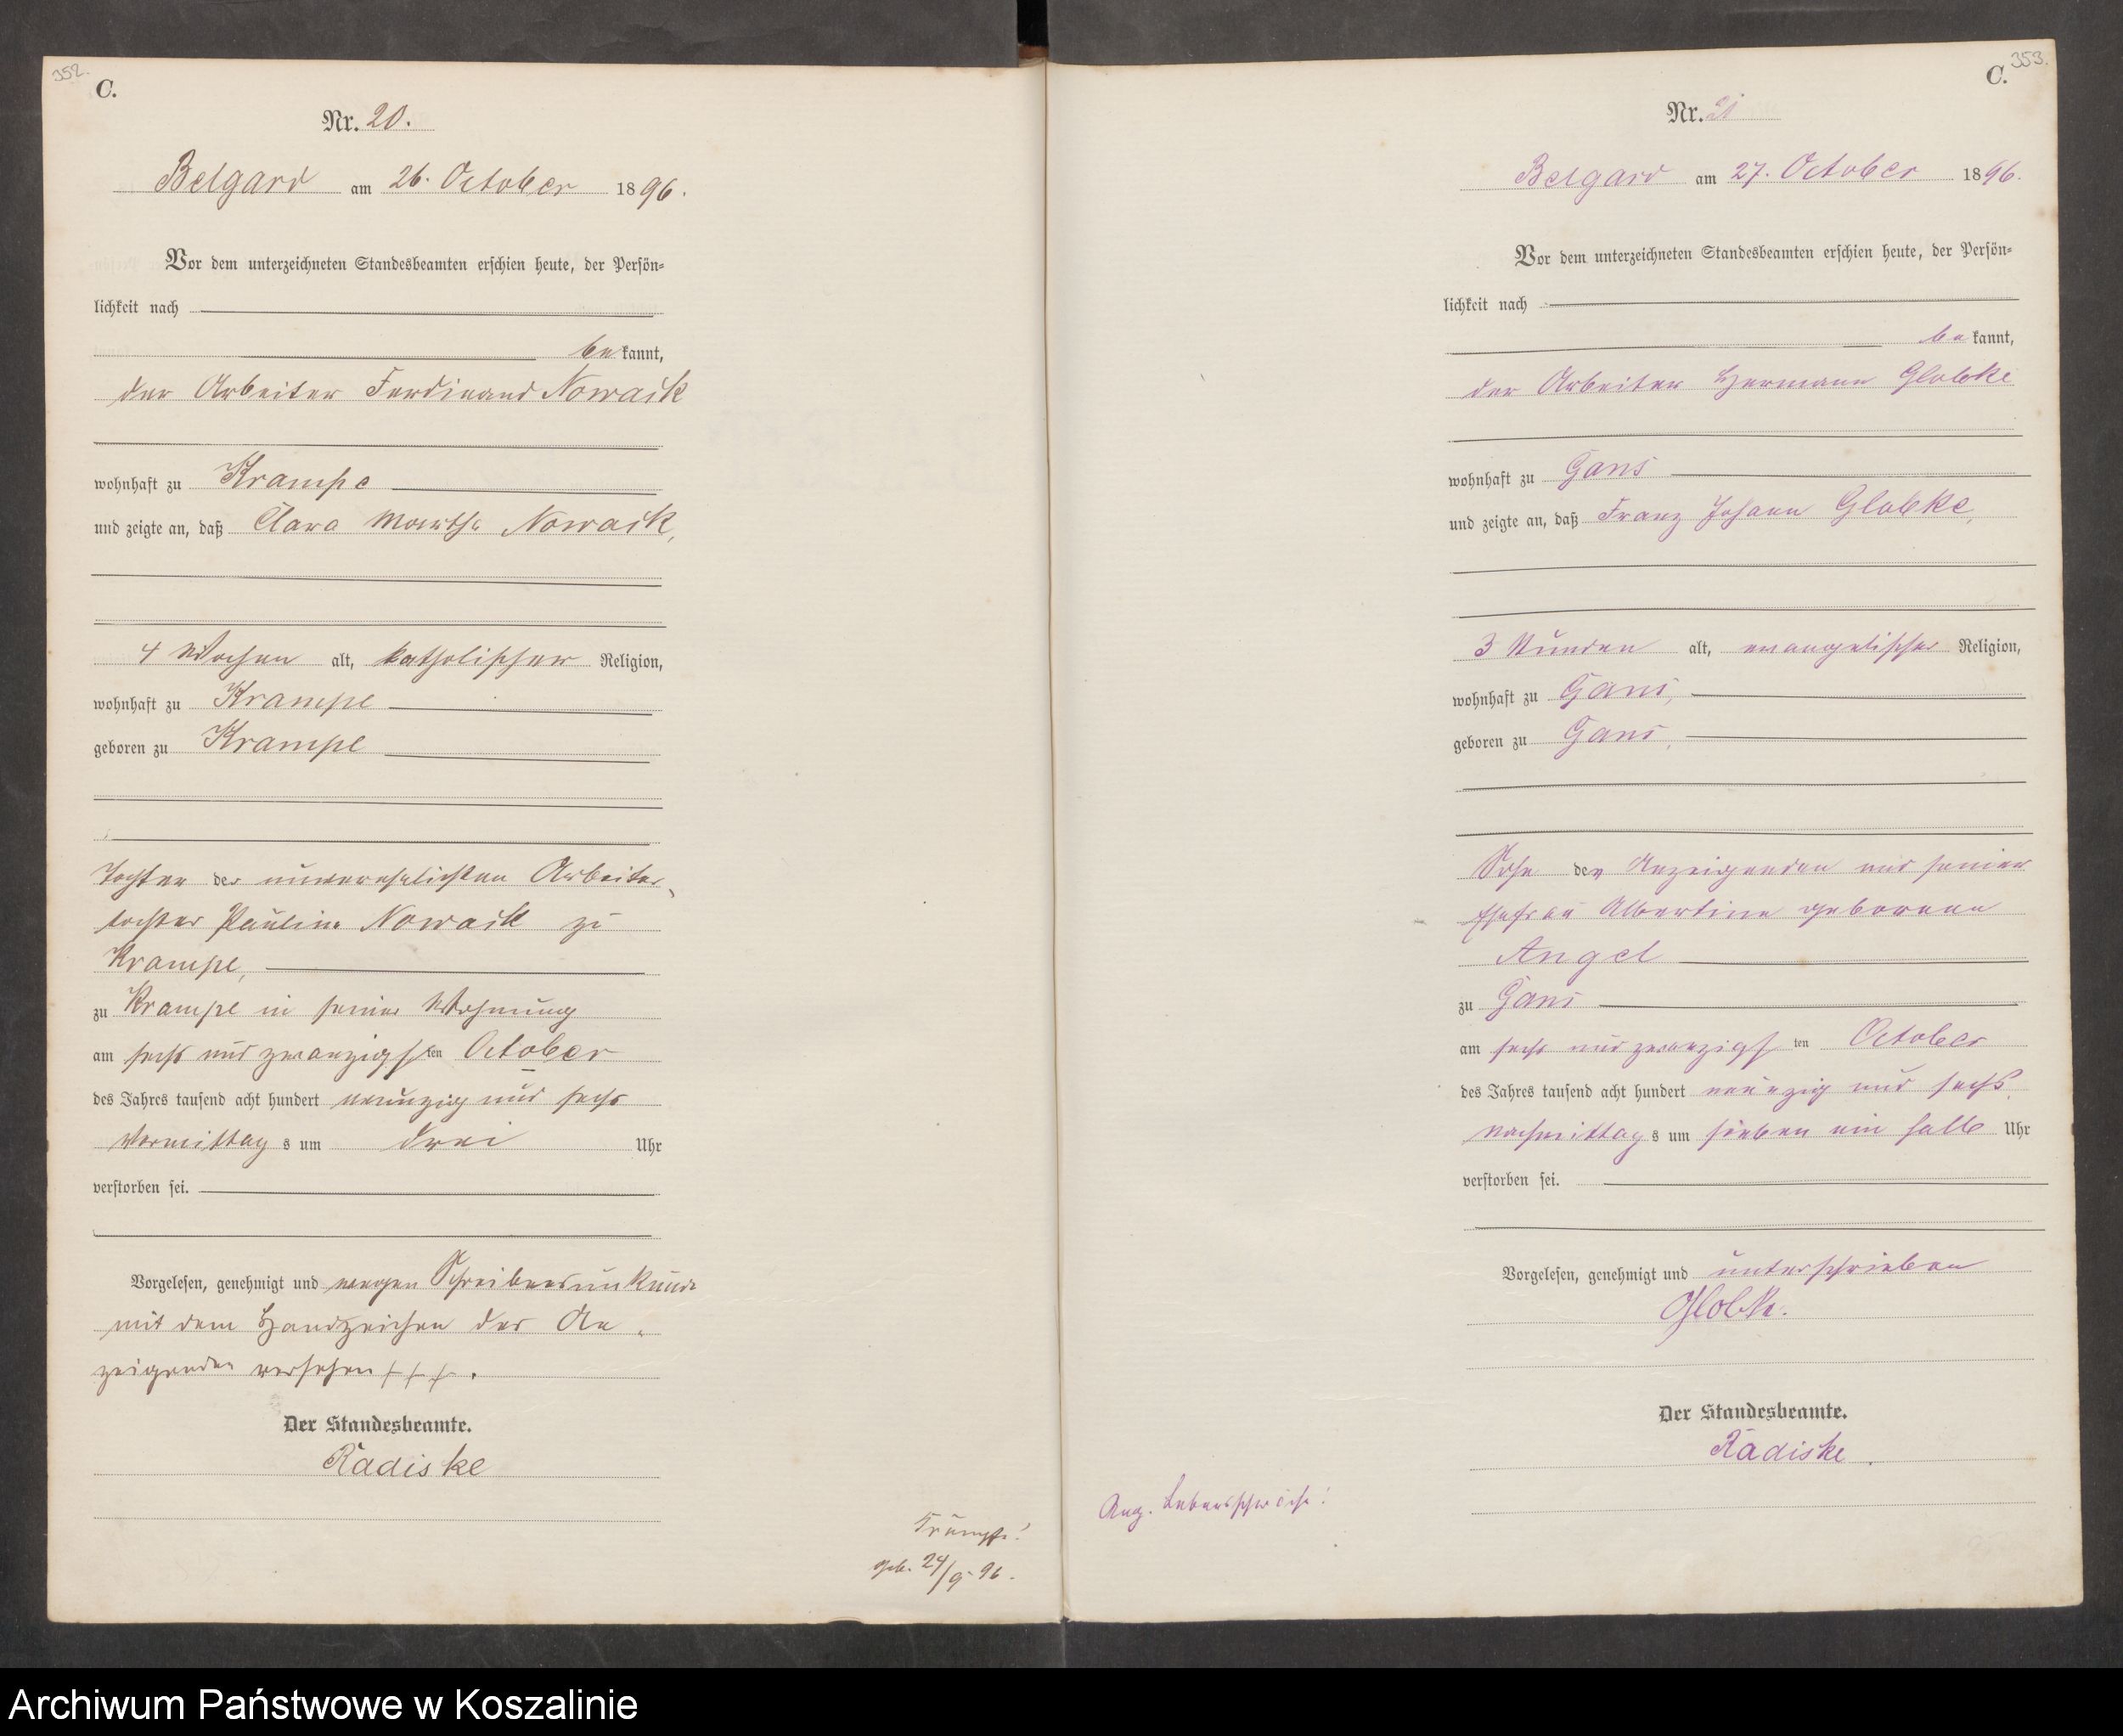 352.
C.
Nr. 20.
Belgard am 26. October 1896.
Vor dem unterzeichneten Standesbeamten erschien heute, der Persön-
lichkeit nach
bekannt,
der Arbeiter Ferdinand Nowack
wohnhaft zu Krampe
und zeigte an, daß Clara Martha Nowack,
4 Wochen alt, katholischer Religion,
wohnhaft zu Krampe
geboren zu Krampe
Tochter der unverehelichten Arbeiter-
tochter Pauline Nowack zu
Krampe,
zu Krampe in seiner Wohnung
am sechs und zwanzigsten October
des Jahres tausend acht hundert neunzig und sechs
Vormittags um drei Uhr
verstorben sei.
Vorgelesen, genehmigt und wegen Schreibensunkunde
mit dem Handzeichen des An-
zeigenden versehen +++.
Der Standesbeamte.
Radiske
Krämpfe!
geb. 24/9 96.
353.
C.
Nr. 21
Belgard am 27. October 1896.
Vor dem unterzeichneten Standesbeamten erschien heute, der Persön-
lichkeit nach
bekannt,
der Arbeiter Hermann Globke
wohnhaft zu Gans
und zeigte an, daß Franz Johann Globke,
3 Stunden alt, evangelischer Religion,
wohnhaft zu Gans,
geboren zu Gans,
Sohn des Anzeigenden und seiner
Ehefrau Albertine geborene
Angel
zu Gans
am sechs und zwanzigsten October
des Jahres tausend acht hundert neunzig und sechs
Nachmittags um sieben ein halb Uhr
verstorben sei.
Vorgelesen, genehmigt und unterschrieben
Globke.
Der Standesbeamte.
Radiske.
Ang. Lebensschwäche!
Archiwum Państwowe w Koszalinie